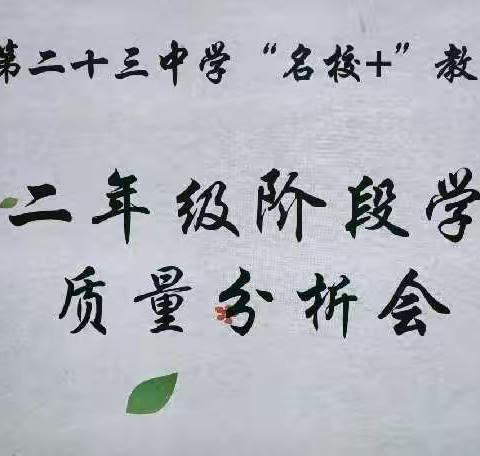 第二十三中学“名校+”教
二年级阶段学
质量分析会